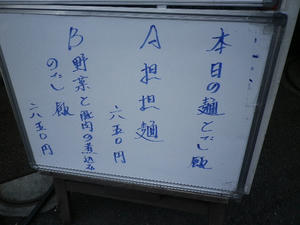 本日の麺とごし飯
A 担担麺
六五〇円
B 野菜と豚肉の煮込み
のごし飯
六五〇円